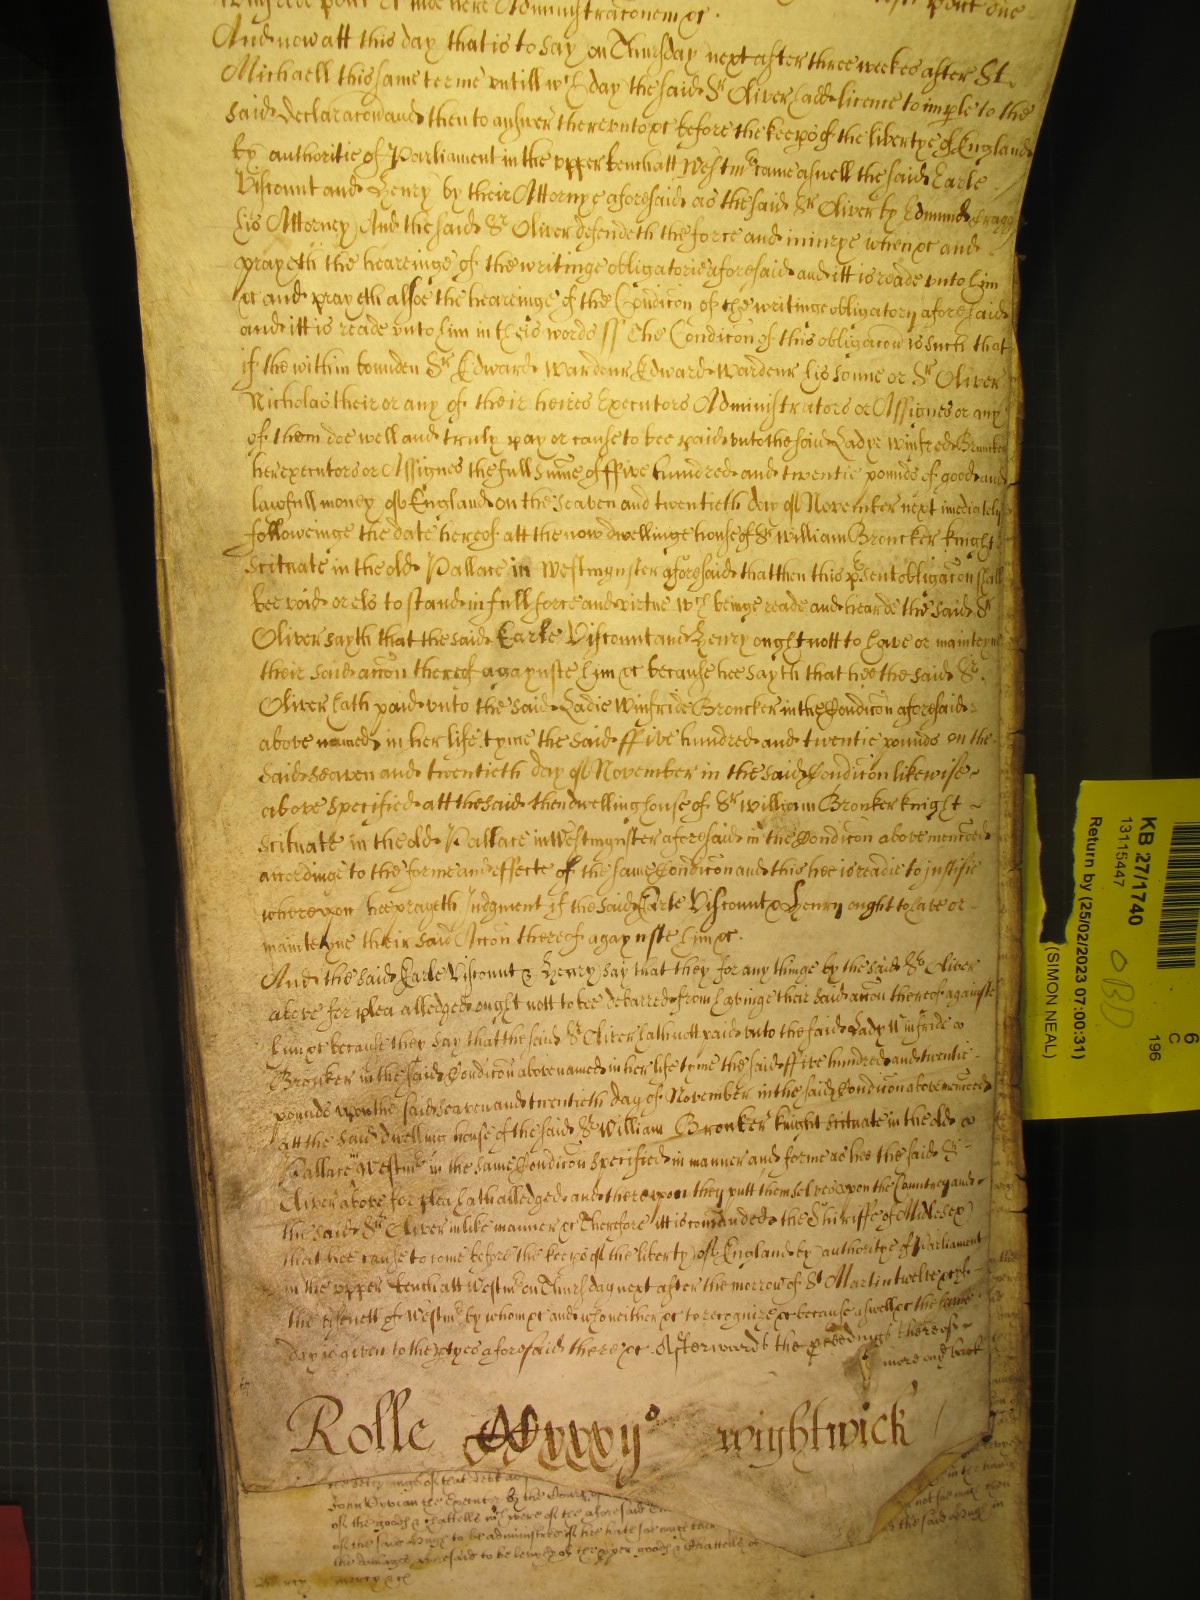 Administraconem &c.
And now att this day that is to say on Thursday next after three weekes after St.
Michaell this same terme untill wch day the said Sr Oliver hadd licence to imple to the
said declaracon and then to answer thereunto &c before the keeps of the libertye of England
by authoritie of Parliament in the upper bench att Westmr came aswell the said Earle
Viscount and Henry by their Attornye aforesaid as the said Sr Oliver by Edmund
his Attorney And the said Sr Oliver defendeth the force and iniurye when &c and
prayeth the heareinge of the writinge obligatorie aforesaid and itt is reade unto him
&c and prayeth alsoe the heareinge of the Condicon of the writinge obligatory aforesaid
and itt is reade unto him in theis words ss The Condicon of this obligacon is such that
if the within bounden Sr Edward Wardeur Edward Wardeur his sonne or Sr Oliver
Nicholas their or any of their heires Executors Administrators or Assignes or any
of them doe well and truly pay or cause to bee paid unto the said Ladye Winfred Bruncker
her executors or Assignes the full summe of ffive hundred and twentie pounds of good and
lawfull money of England on the seaven and twentieth day of November next imediately
followeinge the date hereof att the now dwellinge house of Sr William Broncker knight
scituate in the old Pallace in Westmynster aforesaid that then this psent obligacon shall
bee void or els to stand in full force and virtue wch beinge reade and hearde the said Sr
Oliver sayth that the said Earle Viscount and Henry ought nott to have or mainteyne
their said accon thereof agaynste him &c because hee sayth that hee the said Sr
Oliver hath paid unto the said Ladie Winfride Broncker in the Condicon aforesaid
above named in her life tyme the said ffive hundred and twentie pounds on the
said seaven and twentieth day of November in the said Condicon likewise
above specified att the said then dwelling house of Sr William Bronker knight
scituate in the old Pallace in Westmynster aforesaid in the Condicon above menconed
accordinge to the forme and effecte of the same Condicon and this hee is readie to justifie
whereupon hee prayeth Judgment if the said Earle Viscount & Henry ought to have or
mainteyne their said Accon thereof agaynste him &c.
And the said Earle Viscount & Henry say that they for any thinge by the said Sr Oliver
above for plea alledged ought nott to bee debarred from haveinge their said accon thereof againste
him &c because they say that the said Sr Oliver hath nott paid unto the said Lady Winfride
Bronker in the said Condicon above named in her life tyme the said ffive hundred and twentie
pounds upon the said seaven and twentieth day of November in the said Condicon above menconed
att the said dwelling house of the said Sr William Bronker knight scituate in the old
Pallace in Westmr in the same Condicon specified in manner and forme as hee the said Sr
Oliver above for plea hath alledged and thereupon they putt themselves upon the Countrey and
the said Sr Oliver in like manner &c Therefore itt is comanded the Shiriffe of Midlesex
that hee cause to come before the keeps of the liberty of England by authoritye of Parliament
in the upper bench att Westmr on Thursday next after the morrow of St Martin twelve &c
the of Westmr by whom &c and who neither &c to recognize &c because aswell &c the same
day is given to the ptyes aforesaid there &c. Afterwards the pceedings thereof
more on back
Rolle wightwick
of that debt
John Vyvian the Executor by the
of the goods & chattells wch were of the aforesaid
of the said to be administred if hee hath soe much then
the damages aforesaid to be levyed of the pper goods & chattells of
mercy &c
KB 27/1740
13115447
Return by (25/02/2023 07:00:31)
(SIMON NEAL)
OBD
6
C
196